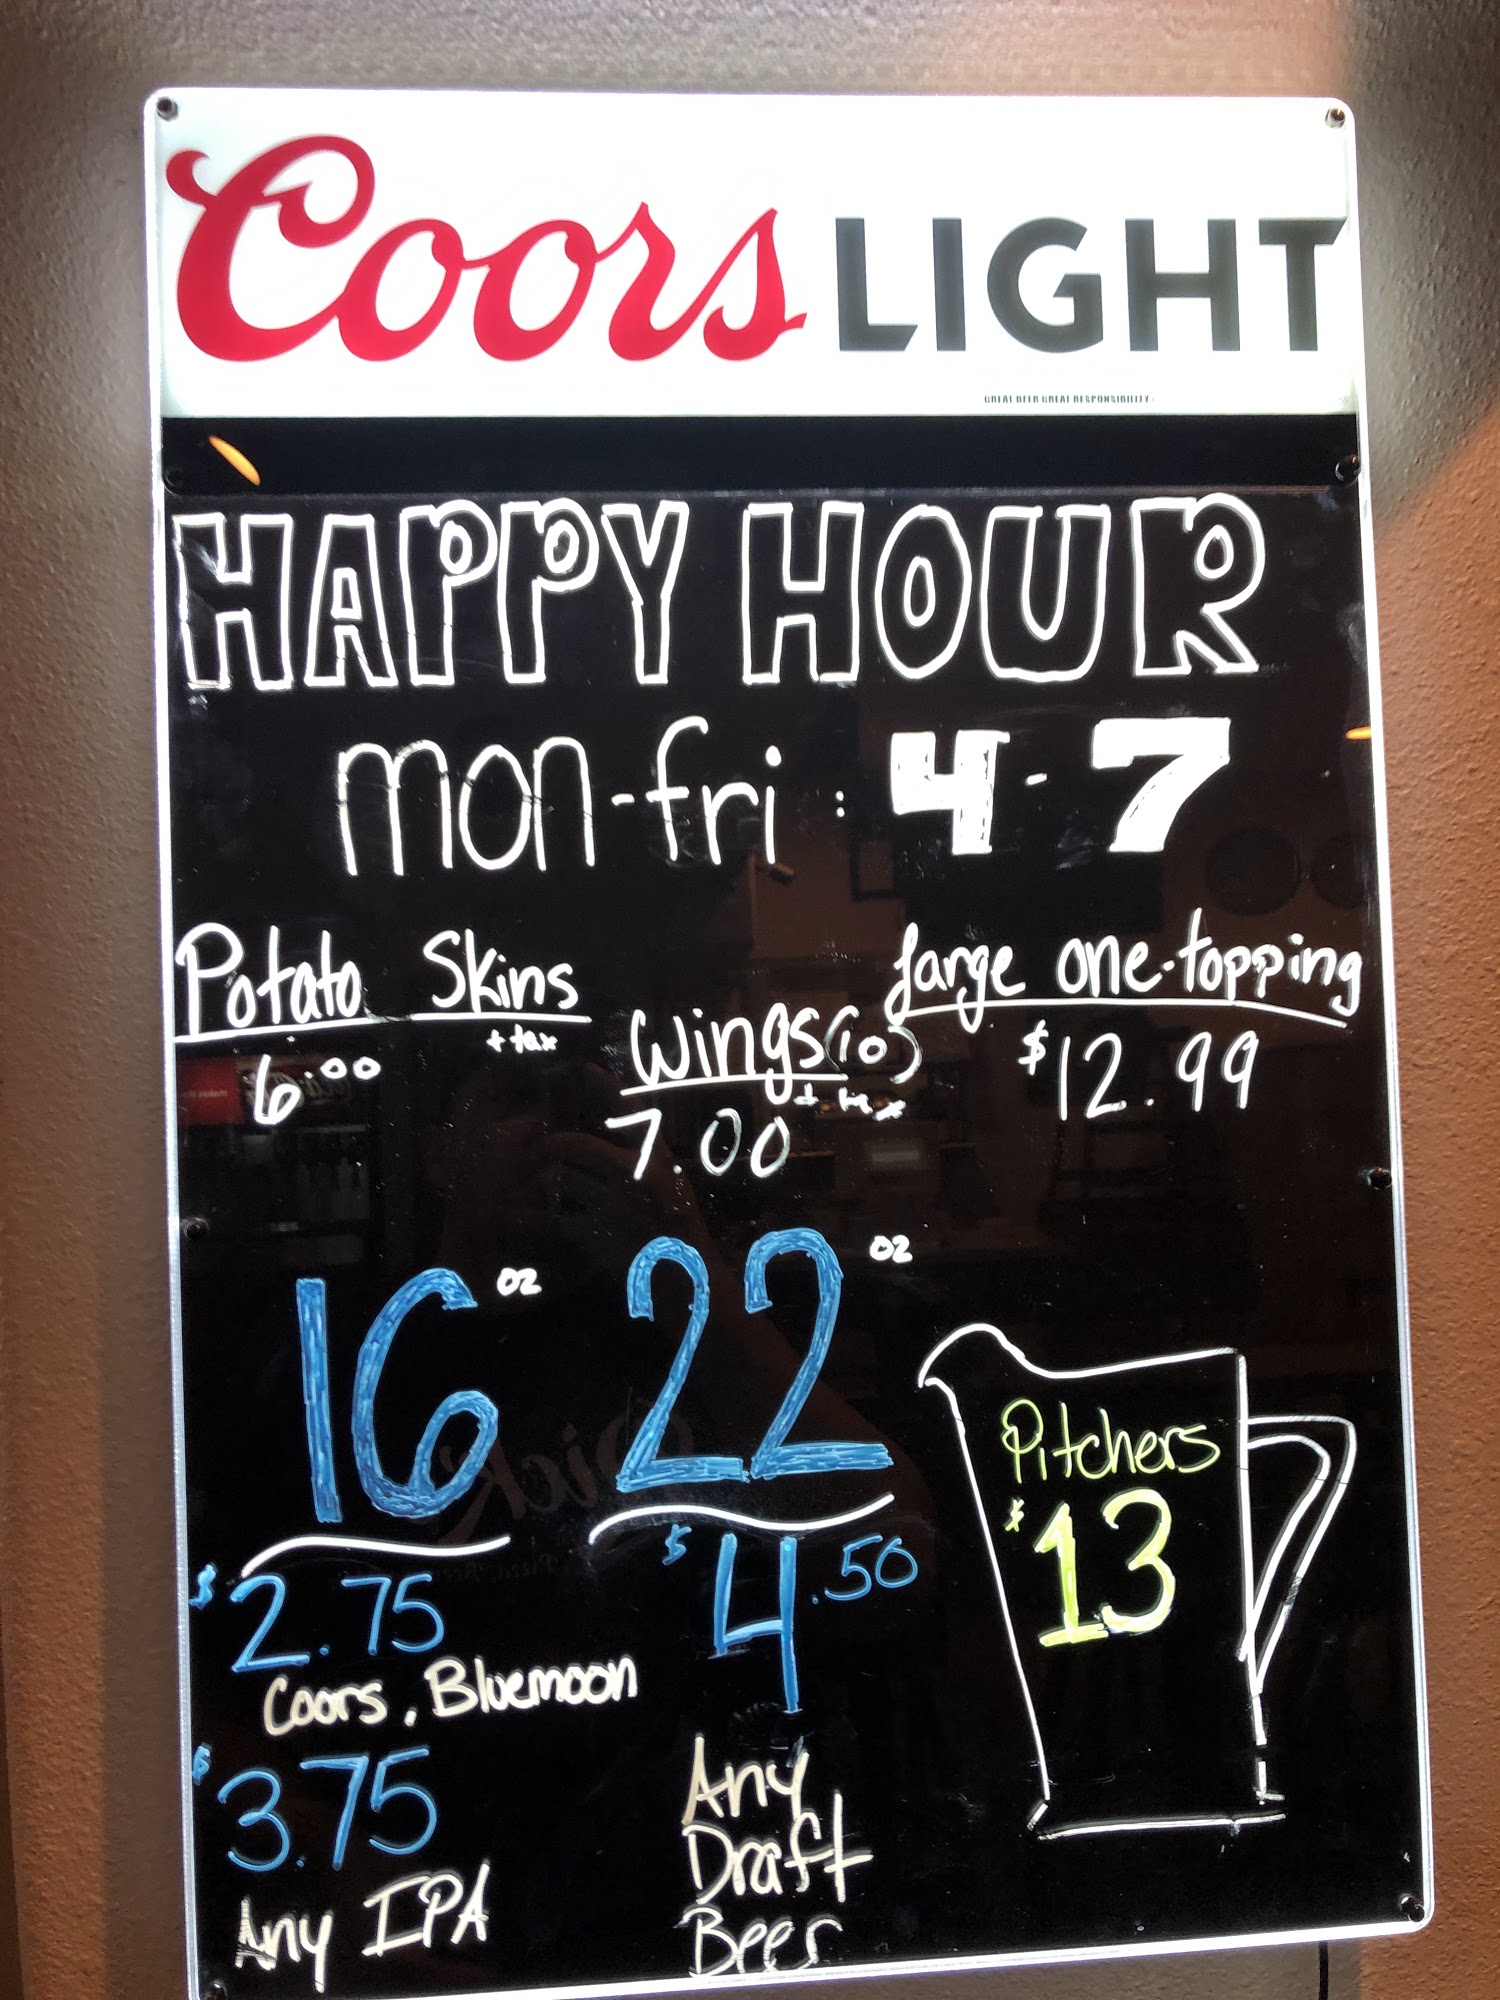 Coors LIGHT
GREAT BEER GREAT RESPONSIBILITY
HAPPY HOUR
mon-fri : 4-7
Potato Skins
+ tax
6.00
Wings (10)
+ tax
7.00
Large one-topping
$12.99
16 oz
$2.75
Coors, Bluemoon
$3.75
Any IPA
22 oz
$4.50
Any
Draft
Beer
Pitchers
$13